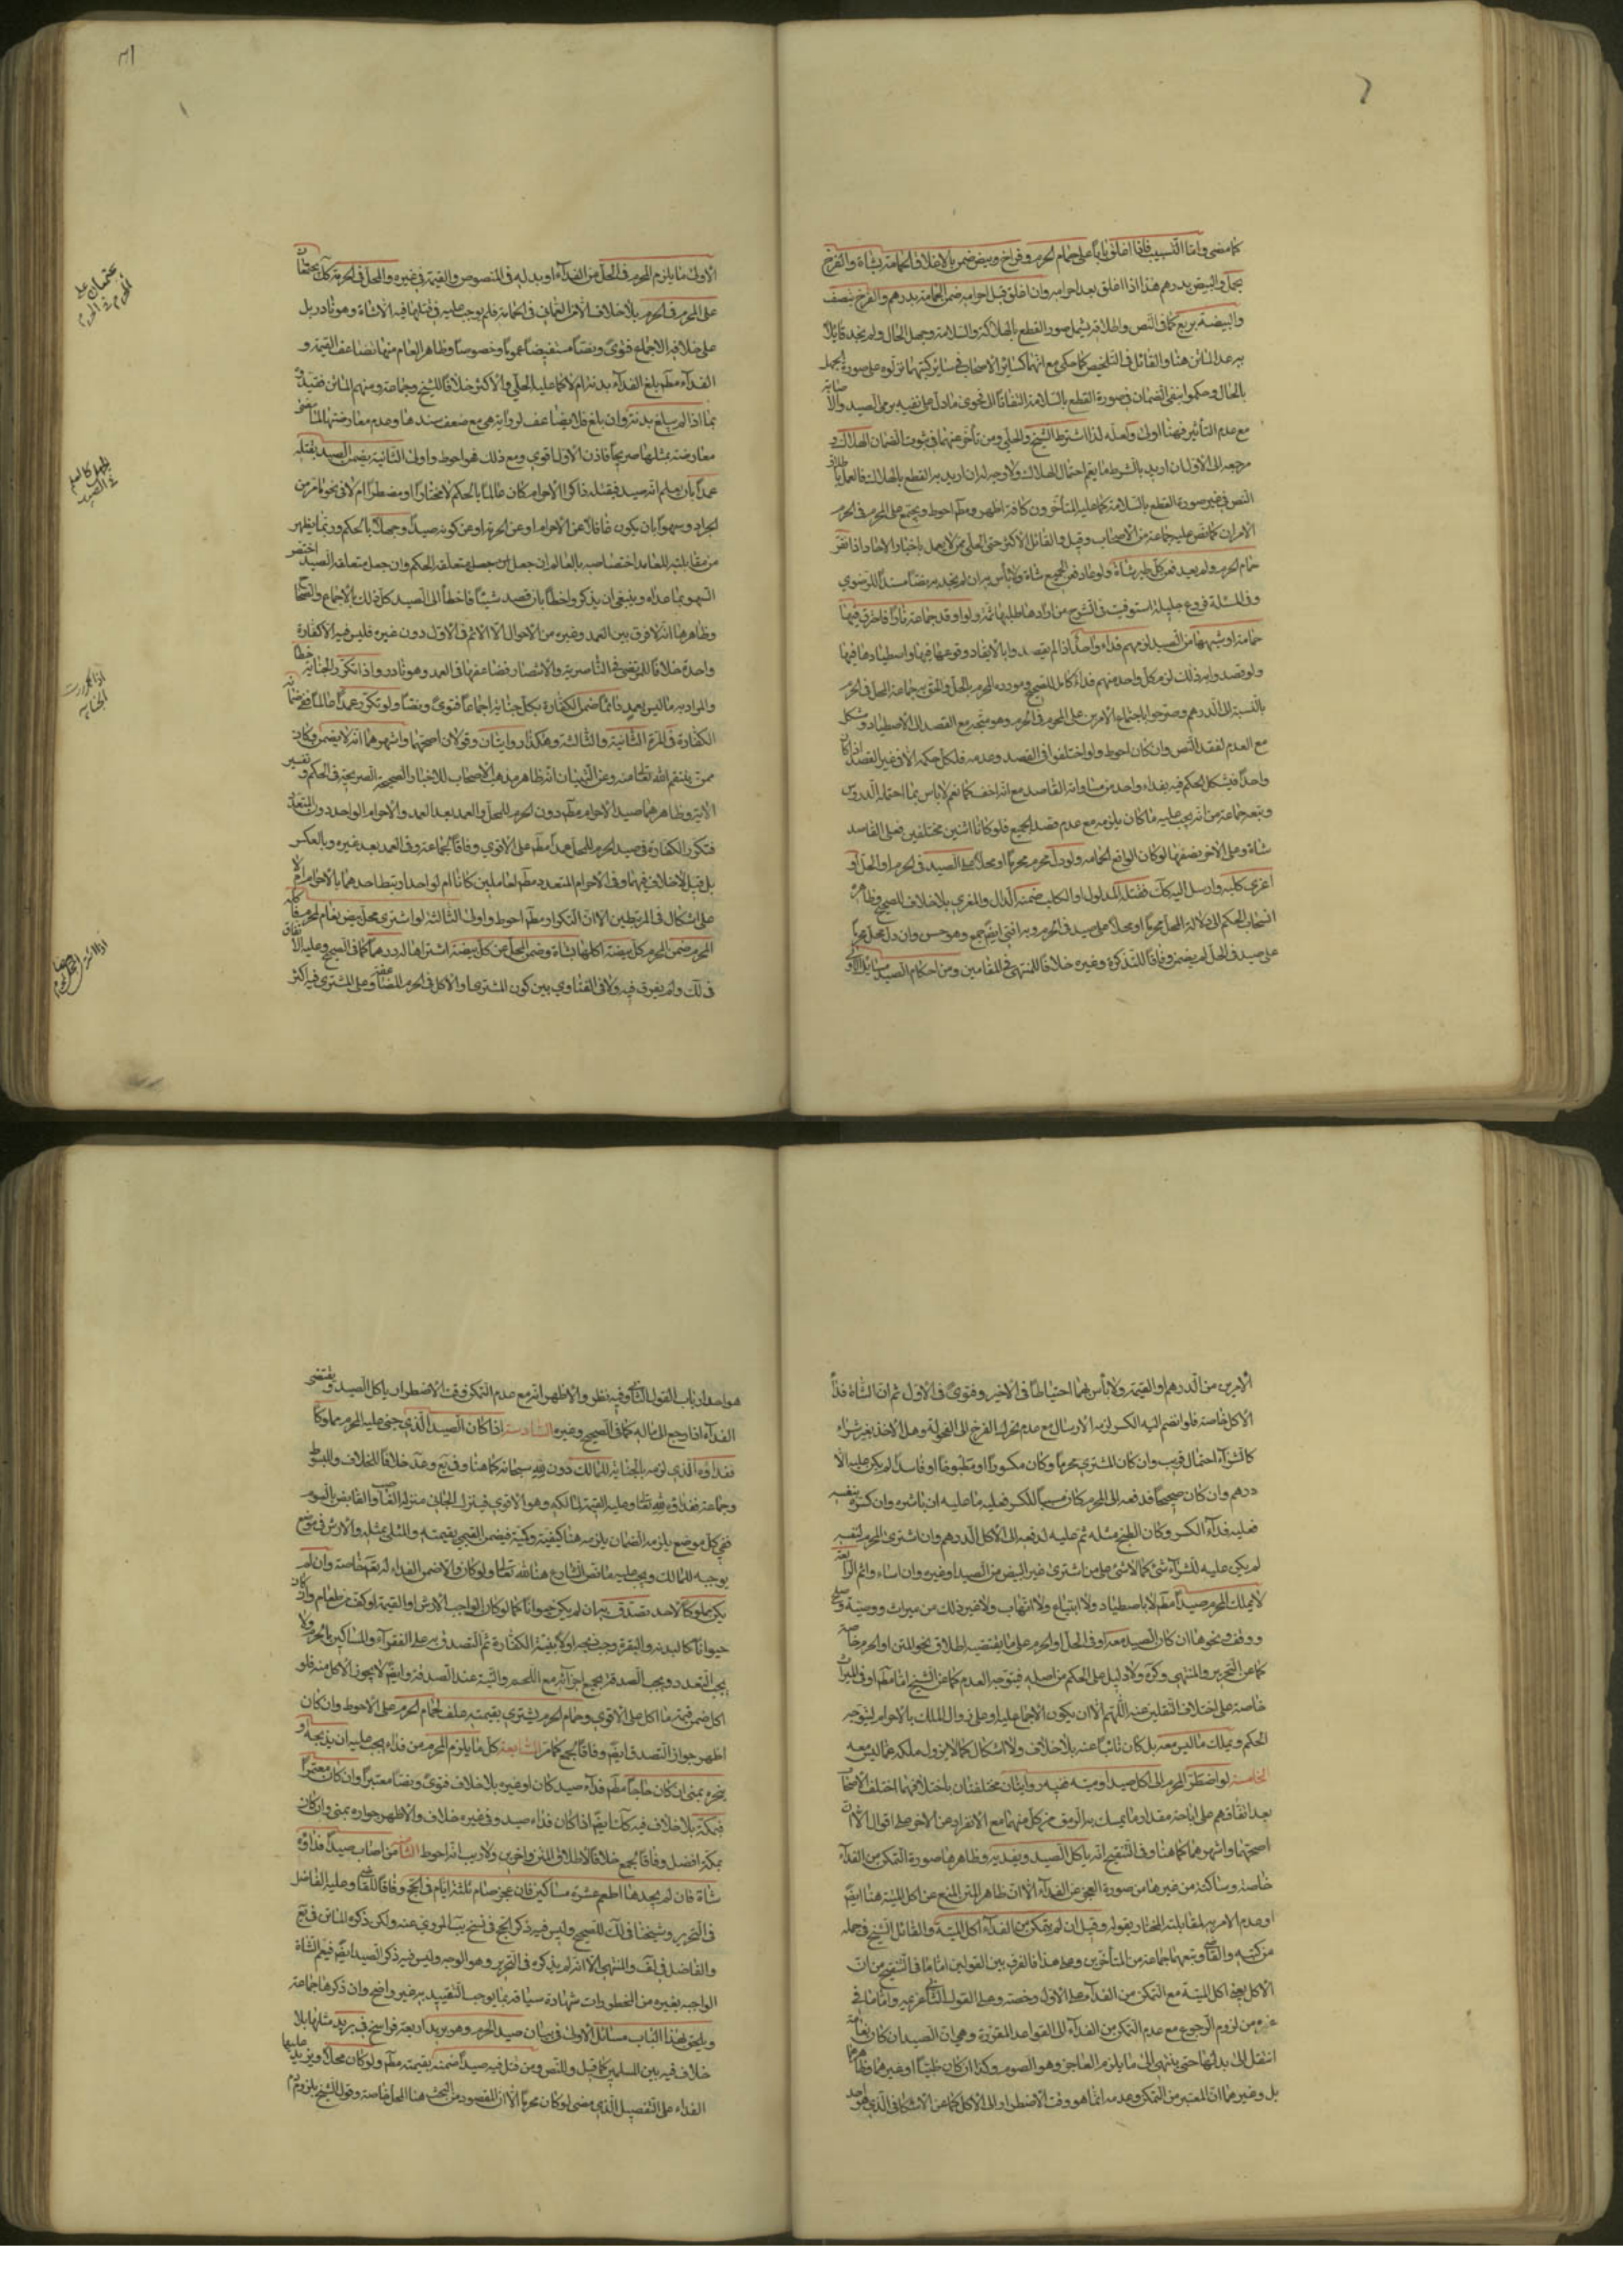 كما مضى واما التسبيب فاذا اغلق بابا على حمام الحرم وفراخ وبيض ضمن بالاغلاق الحمامة بشاة والفرخ
بحمل والبيض بدرهم هذا اذا اغلق بعد احرامه وان اغلق قبل احرامه ضمن الحمامة بدرهم والفرخ بنصف
والبيضة بربع كما في النص واطلاقه يشمل صور القطع بالهلاكة والسلامة وجهل الحال ولم يجد قائلا
به عدا الماتن هنا والقائل في التلخيص كما حكي مع انهما كسائر الاصحاب في سائر كتبهما نزلوه على صورة الجهل
بالحال وحكموا بنفي الضمان في صورة القطع بالسلامة التفاتا الى فحوى ما دل على نفيه برمي الصيد والاصابة
مع عدم التأثير فهنا اولى ولعله لذا اشترط الشيخ والحلي ومن تأخر عنهما في ثبوت الضمان الهلاك و
مرجعه الى الاول ان اريد بالشرط ما يعم احتمال الهلاك ولا وجه له ان اريد به القطع بالهلاك فالعمل باطلاق
النص في غير صورة القطع بالسلامة كما عليه المتأخرون كافة اظهر ومع احوط ويجتمع على المحرم في الحرم
الامران كما نص عليه جماعة من الاصحاب وقيل والقائل الاكثر حتى الحلي ممن لا يعمل باخبار الاحاد اذا نفر
حمام الحرم ولم يعد فعن كل طير شاة ولو عاد فعن الجميع شاة ولا بأس به وان لم نجد به نصا مسندا للرضوي
وفي المسئلة فروع جليلة استوفيت في الشرح من ارادها طلبها ثمة ولو اوقد جماعة نارا فاحترق فيها
حمامة او شبهها من الصيد لزمهم فداء واحد اذا لم يقصدوا بالايقاد وقوعها فيها واصطيادها فيها
ولو قصدوا به ذلك لزم كل واحد منهم فداء كامل للصحيح ومورده المحرم بالحل والحق به جماعة المحل في الحرم
بالنسبة الى الدرهم وصرحوا باجتماع الامرين على المحرم في الحرم وهو متجه مع القصد الى الاصطياد ويشكل
مع العدم لفقد النص وان كان احوط ولو اختلفوا في القصد وعدمه فلكل حكمه الا في غير القصد اذا كان
واحدا فيشكل الحكم فيه بفداء واحد من مساواته القاصد مع انه اخف كما نعم لا بأس بما احتمله الدروس
وتبعه جماعة من انه يجب عليه ما كان يلزمه مع عدم قصد الجميع فلو كانا اثنين مختلفين فعلى القاصد
شاة وعلى الاخر نصفها لو كان الواقع الحمامة ولو دل محرم محرما او محلا على الصيد في الحرم او الحل او
اغرى كلبه وارسل اليه كلبه فقتله المدلول او الكلب ضمنه الدال والمغري بلا خلاف للصحيح وظاهره
انسحاب الحكم الى دلالة المحل محرما او محلا على صيد في الحرم وبه افتى ايضا جمع وهو حسن وان دل محل محرما
على صيد في الحل لم يضمن وفاقا للتذكرة وغيره خلافا للمنتهى في المقامين ومن احكام الصيد مسائل الاولى
٣١
الاولى ما يلزم المحرم في الحل من الفداء او بدله في المنصوص والقيمة في غيره والمحل في الحرم كل يجتمعان
على المحرم في الحرم بلا خلاف الا من العماني في الحمامة فلم يوجب عليه في قتلها فيه الا شاة وهو نادر بل
على خلافه الاجماع فتوى ونصا مستفيضا عموما وخصوصا وظاهر العام منها تضاعف القيمة و
الفداء مطم بلغ الفداء بدنة ام لا كما عليه الحلي والاكثر خلافا للشيخ وجماعة ومنهم الماتن فقيدوه
بما اذا لم يبلغ بدنة وان بلغ فلا يضاعف لرواية هي مع ضعف سندها وعدم معارضتها لما مضى
معارضة بمثلها صريحا فاذن الاول اقوى ومع ذلك فهو احوط واولى الثانية يضمن الصيد بقتله
عمدا بان يعلم انه صيد فيقتله ذاكرا لاحرامه كان عالما بالحكم لا مختارا او مضطرا ام لا في نحو ما مر من
الجراد وسهوا بان يكون غافلا عن الاحرام او عن الحرمة او عن كونه صيدا وجهلا بالحكم وربما يظهر
من مقابلته للعامد اختصاصه بالعالم ان جعل متعلقه الحكم وان جعل متعلقه الصيد اختص
السهو بما عداه وينبغي ان يذكر وخطأ بان قصد شيئا فاخطأ الى الصيد كل ذلك بالاجماع والصحاح
وظاهرها انه لا فرق بين العمد وغيره من الاحوال الا الاثم في الاول دون غيره فليس فيه الا كفارة
واحدة خلافا للمرتضى في الناصرية والانتصار فضاعفها في العمد وهو نادر واذا تكرر الجناية خطأ
والمراد به ما ليس بعمد فائما ضمن الكفارة بكل جناية اجماعا فتوى ونصا ولو تكرر عمدا عالما ففي ضمانه
الكفارة في المرة الثانية والثالثة وهكذا روايتان وقولان اصحهما واشهرهما انه لا يضمن وكان
ممن ينتقم الله تعالى منه وعن التبيان انه ظاهر مذهب الاصحاب للاخبار الصحيحة الصريحة في الحكم وتفسير
الاية وظاهرهما صيد الاحرام مطم دون الحرم للمحل والعمد بعد العمد والاحرام الواحد دون المتعدد
فتكرر الكفارة في صيد الحرم للمحل عمدا مطم على الاقوى وفاقا لجماعة وفي العمد بعد غيره وبالعكس
بل قيل لا خلاف فيهما وفي الاحرام المتعدد مطم لعاملين كانا ام لواحد ارتبط احدهما بالاحرام ام لا
على اشكال في المرتبطين الا ان التكرار مطم احوط واولى الثالثة لو اشترى محل بيض نعام لمحرم فاكله
المحرم ضمن المحرم كل بيضة اكلها بشاة وضمن المحل عن كل بيضة اشتراها له درهما كما في الصحيح وعليه الاتفاق
في لك ولم يفرق فيه ولا في الفتاوي بين كون المشتري او الاكل في الحرم للمضاعفة وعلى المشتري فيه اكثر
يجتمعان على المحرم في الحرم
الجهل كالسهو في الصيد
اذا تكررت الجناية
الامرين من الدرهم والقيمة ولا بأس بهما احتياطا في الاخير وفتوى في الاول ثم ان الشاة فداء
الاكل خاصة فلو انضم اليه الكسر لزمه الارسال مع عدم تحرك الفرخ الى الفحولة وهل الاخذ بغير شراء
كالشراء احتمال قريب وان كان المشتري محرما وكان مكسورا او مطبوخا او فاسدا لم يكن عليه الا
درهم وان كان صحيحا فدفعه الى المحرم كان مسببا للكسر فعليه ما عليه ان باشره وان كسره بنفسه
فعليه فداء الكسر وكان الطبخ مثله ثم عليه لدفعه الى الاكل الدرهم وان اشترى المحرم لنفسه
لم يكن عليه للشراء شئ كما لا شئ على من اشترى غير البيض من الصيد او غيره وان اساء واثم الرابعة
لا يملك المحرم صيدا مطم لا باصطياد ولا ابتياع ولا اتهاب ولا غير ذلك من ميراث ووصية و
ووقف ونحوها ان كان الصيد معه او في الحل او الحرم على ما يقتضيه اطلاق نحو المتن او الحرم خاصة
كما عن التحرير والمنتهى وكره ولا دليل على الحكم من اصله فيتوجه العدم كما عن الشيخ اما مطم او في الميراث
خاصة على اختلاف النقلين عنه اللهم الا ان يكون الاجماع عليه او على زوال الملك بالاحرام ليتوجه
الحكم ويملك ما ليس معه بل كان نائيا عنه بلا خلاف ولا اشكال كما لا يزول ملكه عما ليس معه
الخامسة لو اضطر المحرم الى اكل صيد او ميتة ففيه روايتان مختلفتان باختلافهما اختلف الاصحاب
بعد اتفاقهم على اباحة مقدار ما يمسك به الرمق من كل منهما مع الانفراد عن الاخر على اقوال الا ان
اصحهما واشهرهما كما هنا وفي التنقيح انه يأكل الصيد ويفديه وظاهرها صورة التمكن من الفداء
خاصة وساكتة عن غيرها من صورة العجز عن الفداء الا ان ظاهر المتن المنع عن اكل الميتة هنا ايضا
او عدم الامر به لمقابلته المختار بقوله وقيل ان لم يتمكن من الفداء اكل الميتة والقائل الشيخ في جملة
من كتبه والقاضي وتبعهما جماعة من المتأخرين وعلى هذا فالفرق بين القولين اما ما في التنقيح من ان
الاكل يجوز اكل الميتة مع التمكن من الفداء على الاول رخصة وعلى القول الثاني عزيمة واما ما في
غيره من لزوم الرجوع مع عدم التمكن من الفداء الى القواعد المقررة وهي ان الصيد ان كان نعامة
انتقل الى بدلها حتى ينتهي الى ما يلزم العاجز وهو الصوم وكذا ان كان ظبيا او غيرهما وظاهرهما
بل وغيرهما ان المعتبر من التمكن وعدمه انما هو وقت الاضطرار الى الاكل كما عن الاسكافي الذي هو احد
هو احد ارباب القول الثاني وفيه نظر والاظهر انه مع عدم التمكن وقت الاضطرار يأكل الصيد ويقتضى
الفداء اذا رجع الى ماله كما في الصحيح وغيره السادسة اذا كان الصيد الذي جنى عليه المحرم مملوكا
ففداؤه الذي لزمه بالجناية للمالك دون الله سبحانه كما هنا وفي يع وعد خلافا للخلاف والمبسوط
وجماعة ففداؤه لله تعالى وعليه القيمة لمالكه وهو الاقوى فينزل الجاني منزلة الغاصب والقابض بالسوم
ففي كل موضع يلزمه الضمان يلزمه هنا كيفية وكمية فيضمن القيمي بقيمته والمثلي بمثله والارش في موضع
يوجبه للمالك ويجب عليه ما نص الشارع هنا لله تعالى ولو كان والا ضمن الفداء له تع خاصة وان لم
يكن مملوكا لاحد تصدق به ان لم يكن حيوانا كما لو كان الواجب الارش او القيمة او كف من طعام وان كان
حيوانا كالبدنة والبقرة وجب ذبحه اولا بنية الكفارة ثم التصدق به على الفقراء والمساكين بالحرم ولا
يجب التعدد ويجب الصدقة بجميع اجزائه مع اللحم والنية عند الصدقة وايضا لا يجوز الاكل منه فلو
اكل ضمن قيمة ما اكل على الاقوى وحمام الحرم يشتري بقيمته علف لحمام الحرم على الاحوط وان كان
اظهر جواز التصدق ايضا وفاقا لجمع كما مر السابعة كل ما يلزم المحرم من فداء يجب عليه ان يذبحه او
ينحره بمنى ان كان حاجا مطم فداء صيد كان او غيره بلا خلاف فتوى ونصا معتبرا وان كان معتمرا
فبمكة بلا خلاف فيه كأنا ايضا اذا كان فداء صيد وفي غيره خلاف والاظهر جوازه بمنى وان كان
بمكة افضل وفاقا لجمع خلافا لاطلاق المتن واخرين ولا ريب انه احوط الثامنة من اصاب صيدا فداؤه
شاة فان لم يجدها اطعم عشرة مساكين فان عجز صام ثلثة ايام في الحج وفاقا للقاضي وعليه الفاضل
في التحرير وشيخنا في لك للصحيح وليس فيه ذكر الحج في نسخ يب المروي عنه ولكن ذكره الماتن في يع
والفاضل في لف والمنتهى الا انه لم يذكره في التحرير وهو الوجه وليس فيه ذكر الصيد ايضا فيعم الشاة
الواجبة بغيره من المحظورات شهادة سياقه بما يوجب التقييد به غير واضح وان ذكرها جماعة
ويلحق بهذا الباب مسائل الاولى في بيان صيد الحرم وهو بريد اربعة فراسخ في بريد مثلها بلا
خلاف فيه بين المسلمين كما قيل وللنص ومن قتل فيه صيدا ضمنه بقيمته مطم ولو كان محلا ويزيد عليها
الفداء على التفصيل الذي مضى لو كان محرما الا ان المقصود من البحث هنا المحل خاصة وقول الشيخ بلزوم